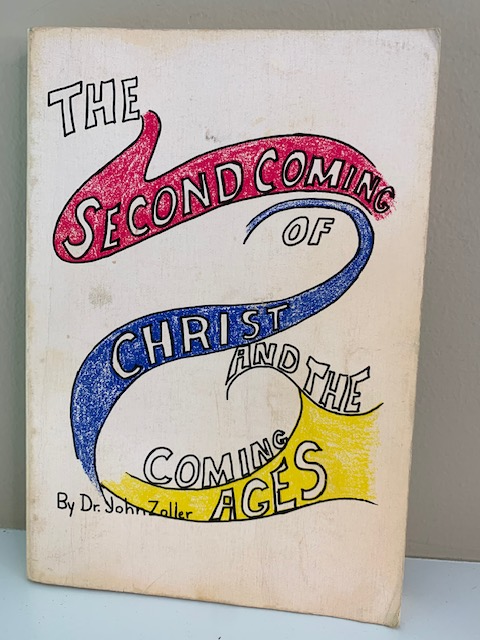 THE
SECOND COMING
OF
CHRIST
AND THE
COMING
AGES
By Dr. John Zoller